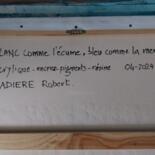 LANC comme l'écume, bleu comme la mer
crylique - encres - pigments - résine 04-2024
ADIERE Robert.